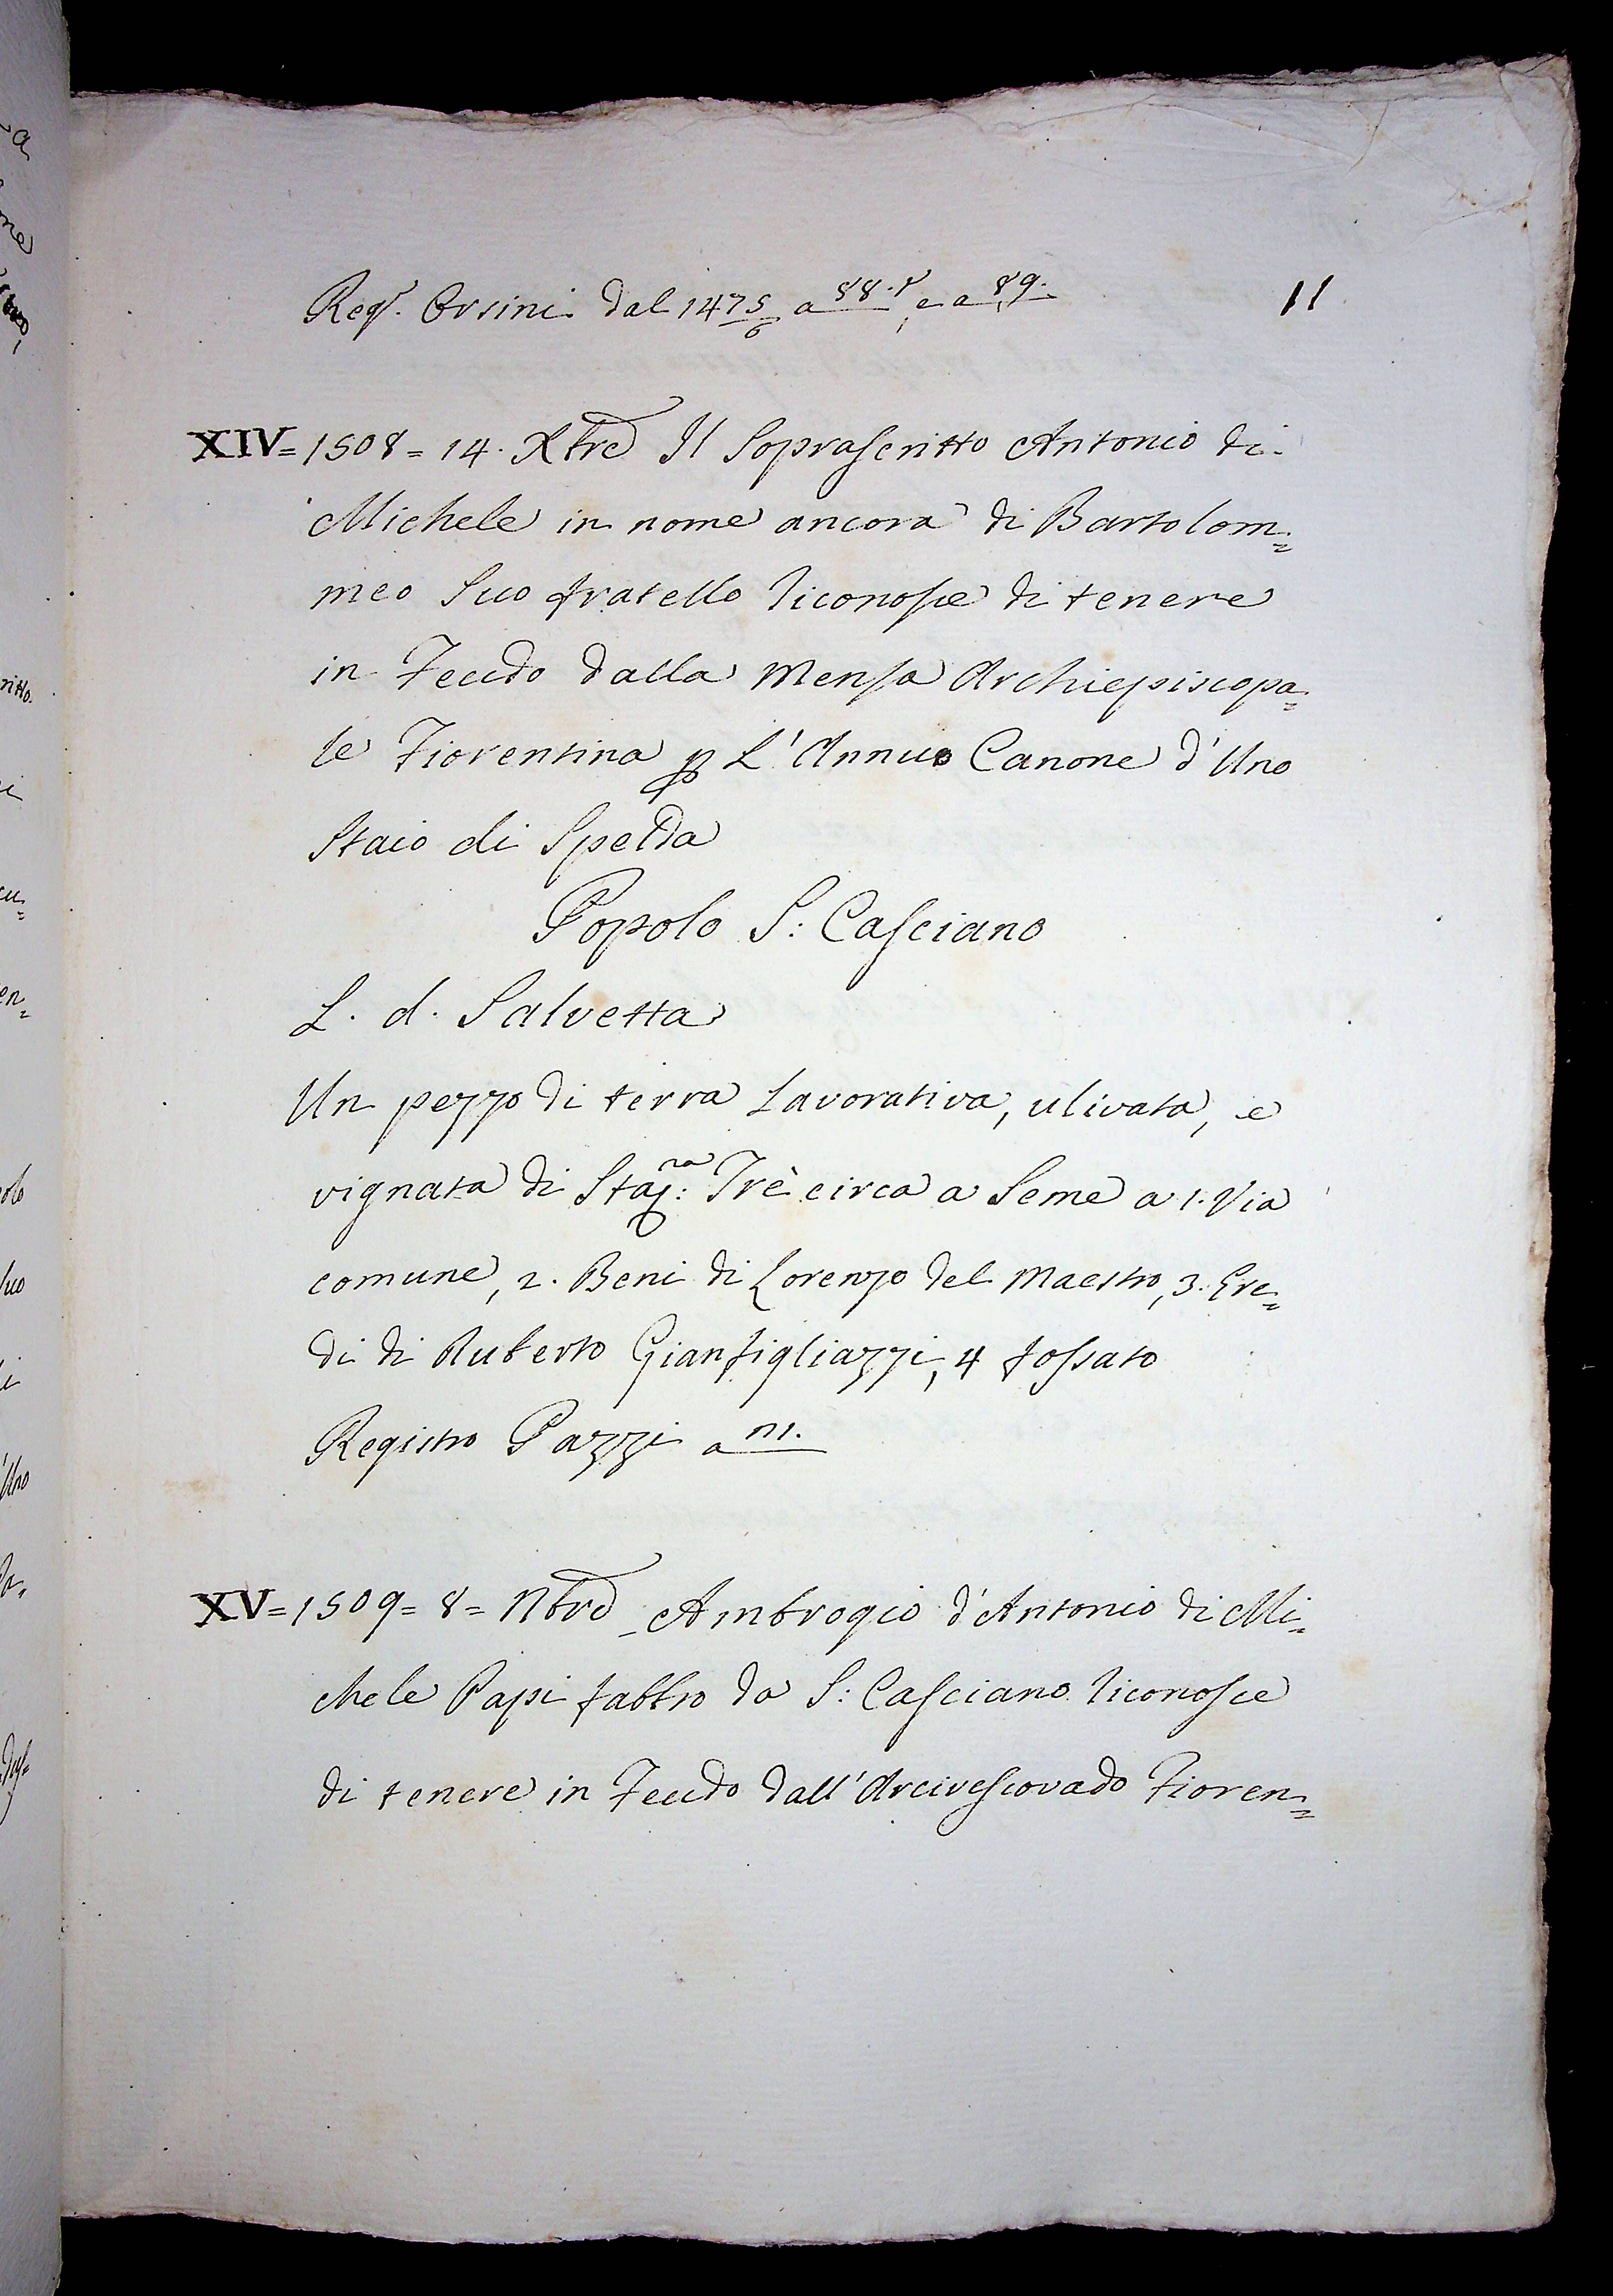 Reg.º Orsini dal 1475/6 a 88.t, e a 89. 11
XIV = 1508 = 14. Xbre Il Soprascritto Antonio di
Michele in nome ancora di Bartolom=
meo Suo fratello riconosce di tenere
in Feudo dalla Mensa Archiepiscopa=
le Fiorentina p L' Annuo Canone d'Uno
Staio di Spelda
Popolo S: Casciano
L. d. Salvetta
Un pezzo di terra Lavorativa, ulivata, e
vignata di Staj:ra Trè circa a Seme a 1. Via
comune, 2. Beni di Lorenzo del Maestro, 3. Ere=
di di Ruberto Gianfigliazzi, 4 fossato
Registro Pazzi a
XV = 1509 = 8 = Nbre Ambrogio d'Antonio di Mi=
chele Papi fabbro da S: Casciano riconosce
di tenere in Feudo dall'Arcivescovado Fioren=